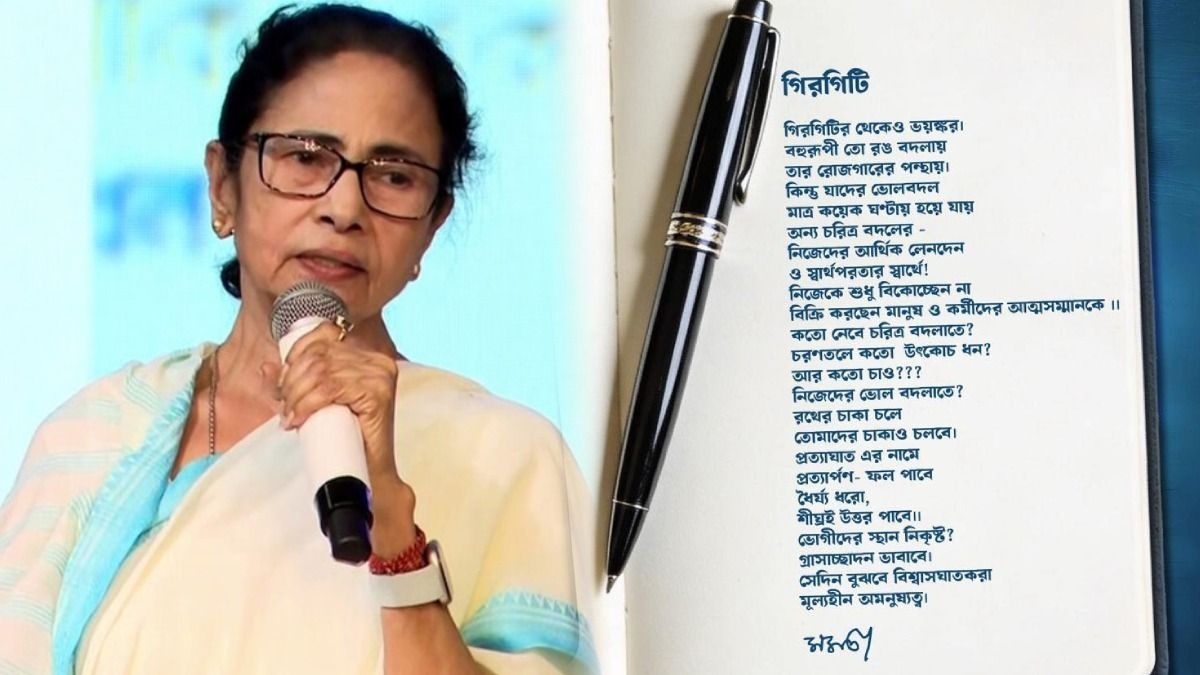 গিরগিটি
গিরগিটির থেকেও ভয়ঙ্কর।
বহুরূপী তো রঙ বদলায়
তার রোজগারের পন্হায়।
কিন্তু যাদের ভোলবদল
মাত্র কয়েক ঘণ্টায় হয়ে যায়
অন্য চরিত্র বদলের -
নিজেদের আর্থিক লেনদেন
ও স্বার্থপরতার স্বার্থে!
নিজেকে শুধু বিকোচ্ছেন না
বিক্রি করছেন মানুষ ও কর্মীদের আত্মসম্মানকে ।।
কতো নেবে চরিত্র বদলাতে?
চরণতলে কতো উৎকোচ ধন?
আর কতো চাও???
নিজেদের ভোল বদলাতে?
রথের চাকা চলে
তোমাদের চাকাও চলবে।
প্রত্যাঘাত এর নামে
প্রত্যার্পণ- ফল পাবে
ধৈর্য্য ধরো,
শীঘ্রই উত্তর পাবে।।
ভোগীদের স্থান নিকৃষ্ট?
গ্রাসাচ্ছাদন ভাবাবে।
সেদিন বুঝবে বিশ্বাসঘাতকরা
মূল্যহীন অমনুষ্যত্ব।
মমতা